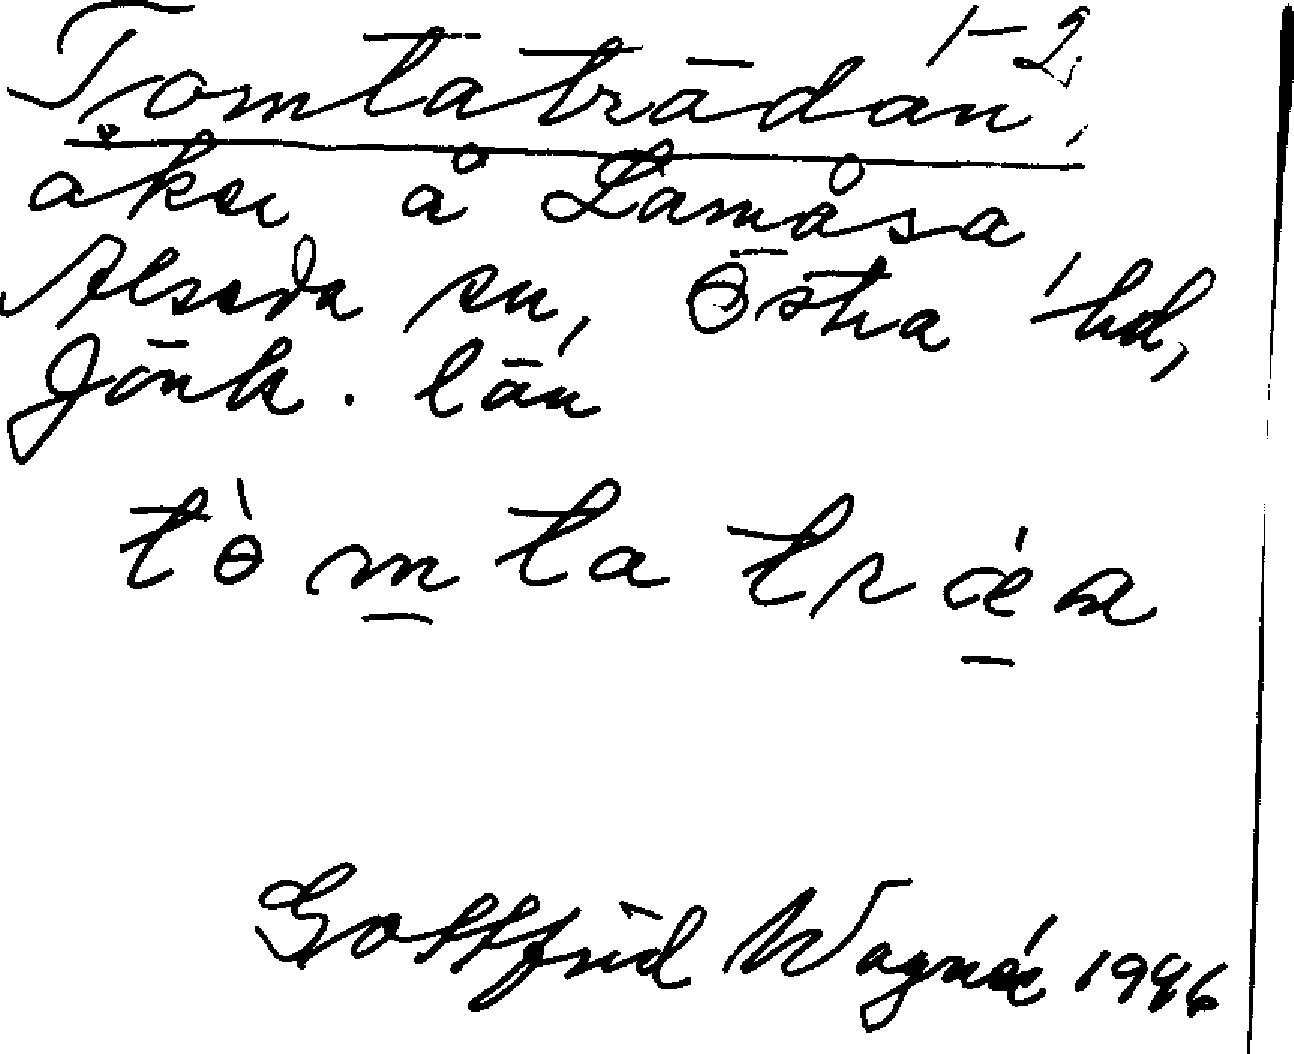 Tomtaträdan, 1-2
åker å Lamåsa
Alseda sn, Östra hd,
Jönk. län
tòmta trǽa
Gottfrid Wagnér 1946